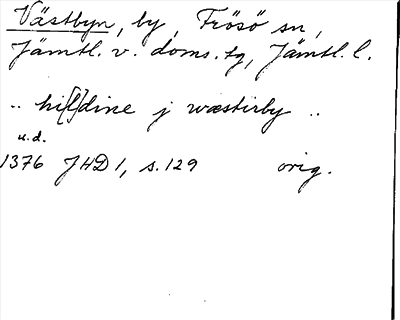 Västbyn, by, Frösö sn,
Jämtl. v. doms. tg, Jämtl. l.
.. hi[l]dine j wæstirby ..
u.d.
1376 JHD 1, s. 129 orig.